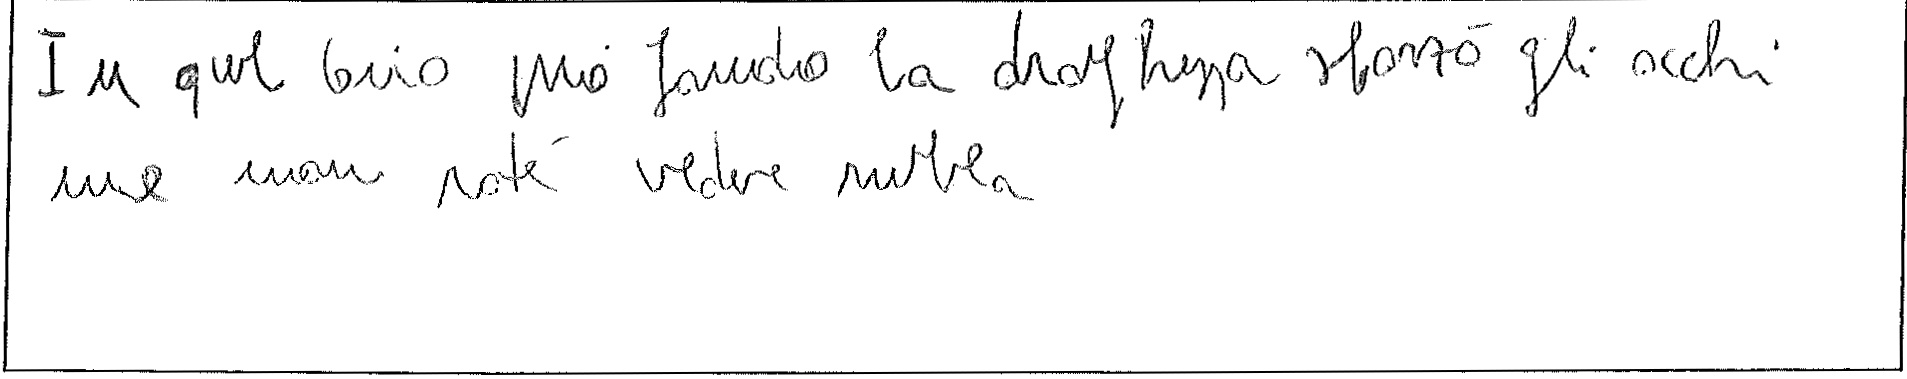 In quel buio più fondo la draghezza sforzò gli occhi
me non poté vedere nulla